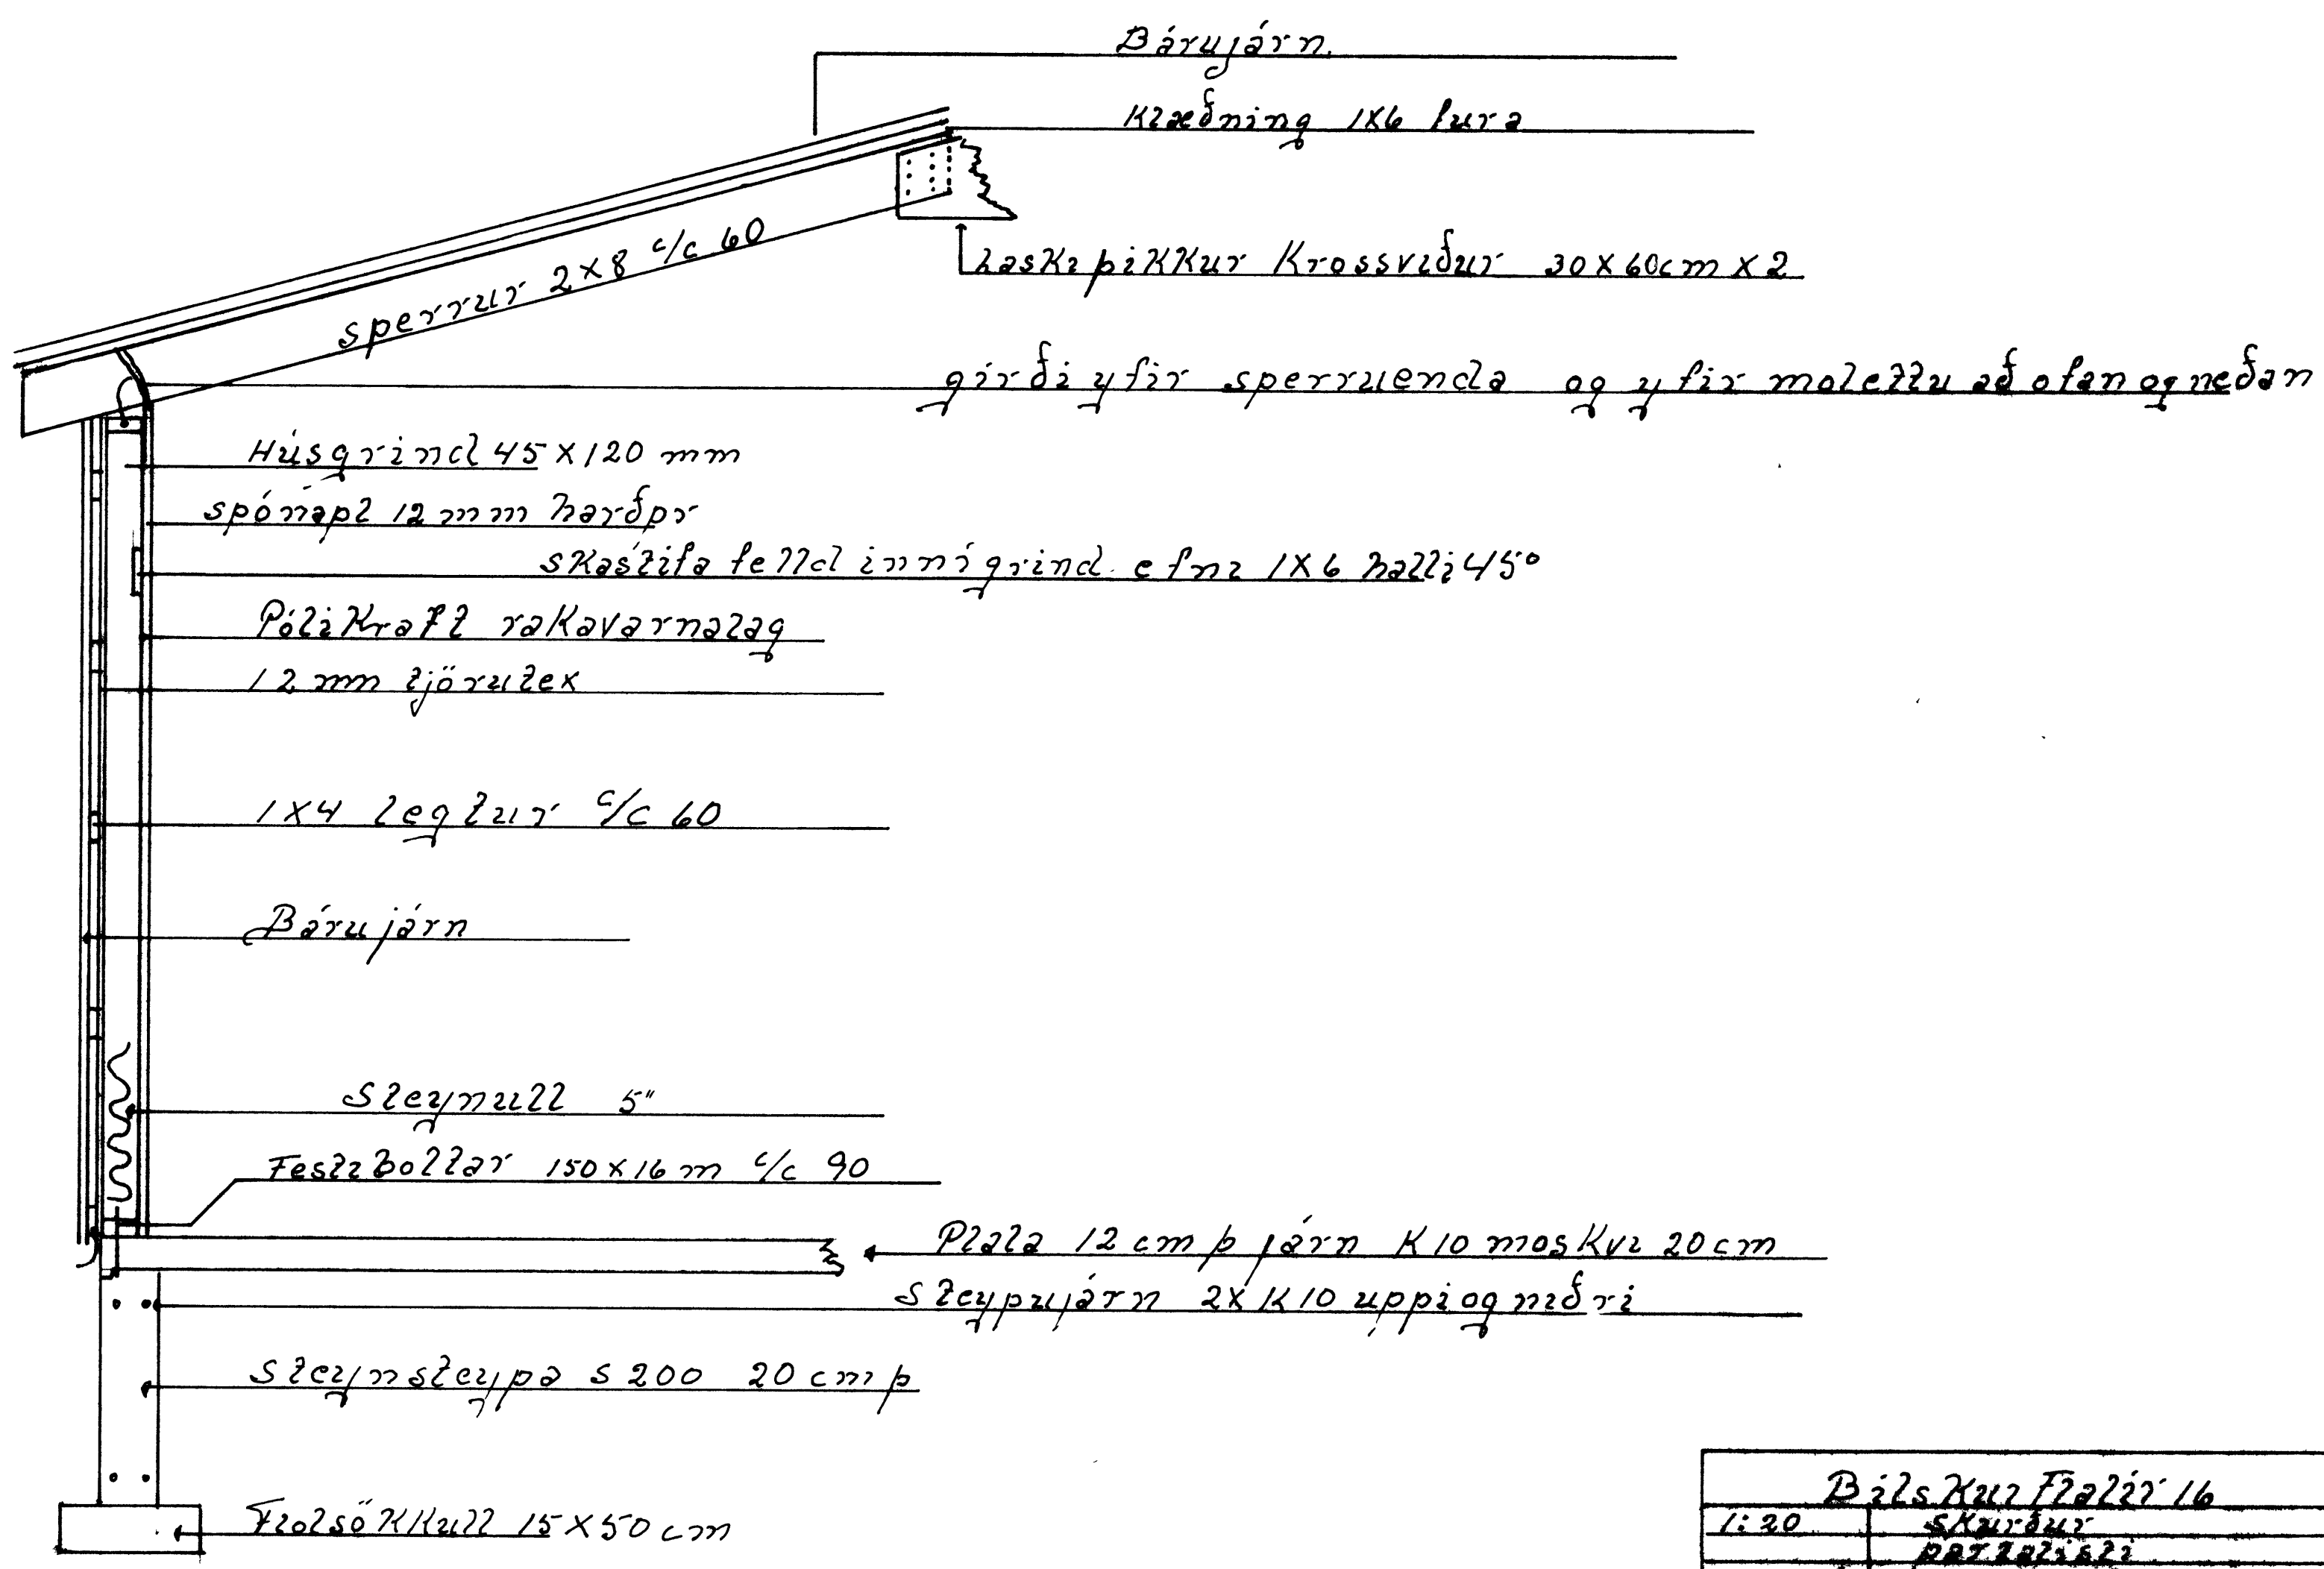 Bárujárn.
Klæðning 1x6 fura
sperrur 2x8 c/c 60
Laskþikkur Krossviður 30x60cm x2
girði yfir sperruenda og yfir molettu að ofan og neðan
Húsgrind 45x120 mm
spónapl 12 mm harðpr
skástífa felld inní grind. efni 1x6 halli 45°
Pólikraft rakavarnalag
12 mm tjörutex
1x4 legtur c/c 60
Bárujárn
Steynull 5"
Festiboltar 150x16 m c/c 90
Plata 12 cm þ járn K10 moskvi 20cm
Steypujárn 2x K10 uppi og niðri
Steynsteypa S200 20 cm þ
15x50 cm
Bilskur 16
1:20 skurður